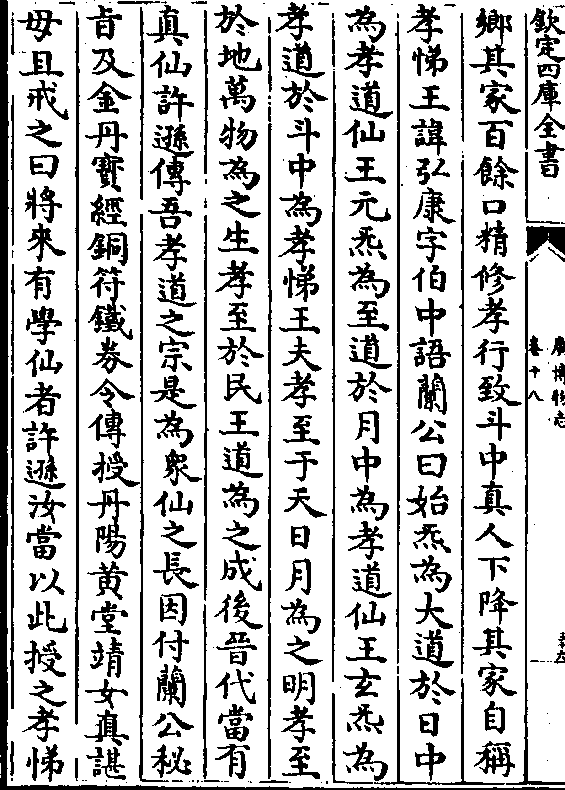 欽定四庫全書
廣博物志
卷十八
鄉其家百餘口精修孝行致斗中真人下降其家自稱
孝悌王諱弘康字伯中語蘭公曰始炁為大道於日中
為孝道仙王元炁為至道於月中為孝道仙王玄炁為
孝道於斗中為孝悌王夫孝至于天日月為之明孝至
於地萬物為之生孝至於民王道為之成後晉代當有
真仙許遜傳吾孝道之宗是為衆仙之長因付蘭公秘
旨及金丹寳經銅符鐵券令傳授丹陽黄堂靖女真諶
母且戒之曰將來有學仙者許遜汝當以此授之孝悌